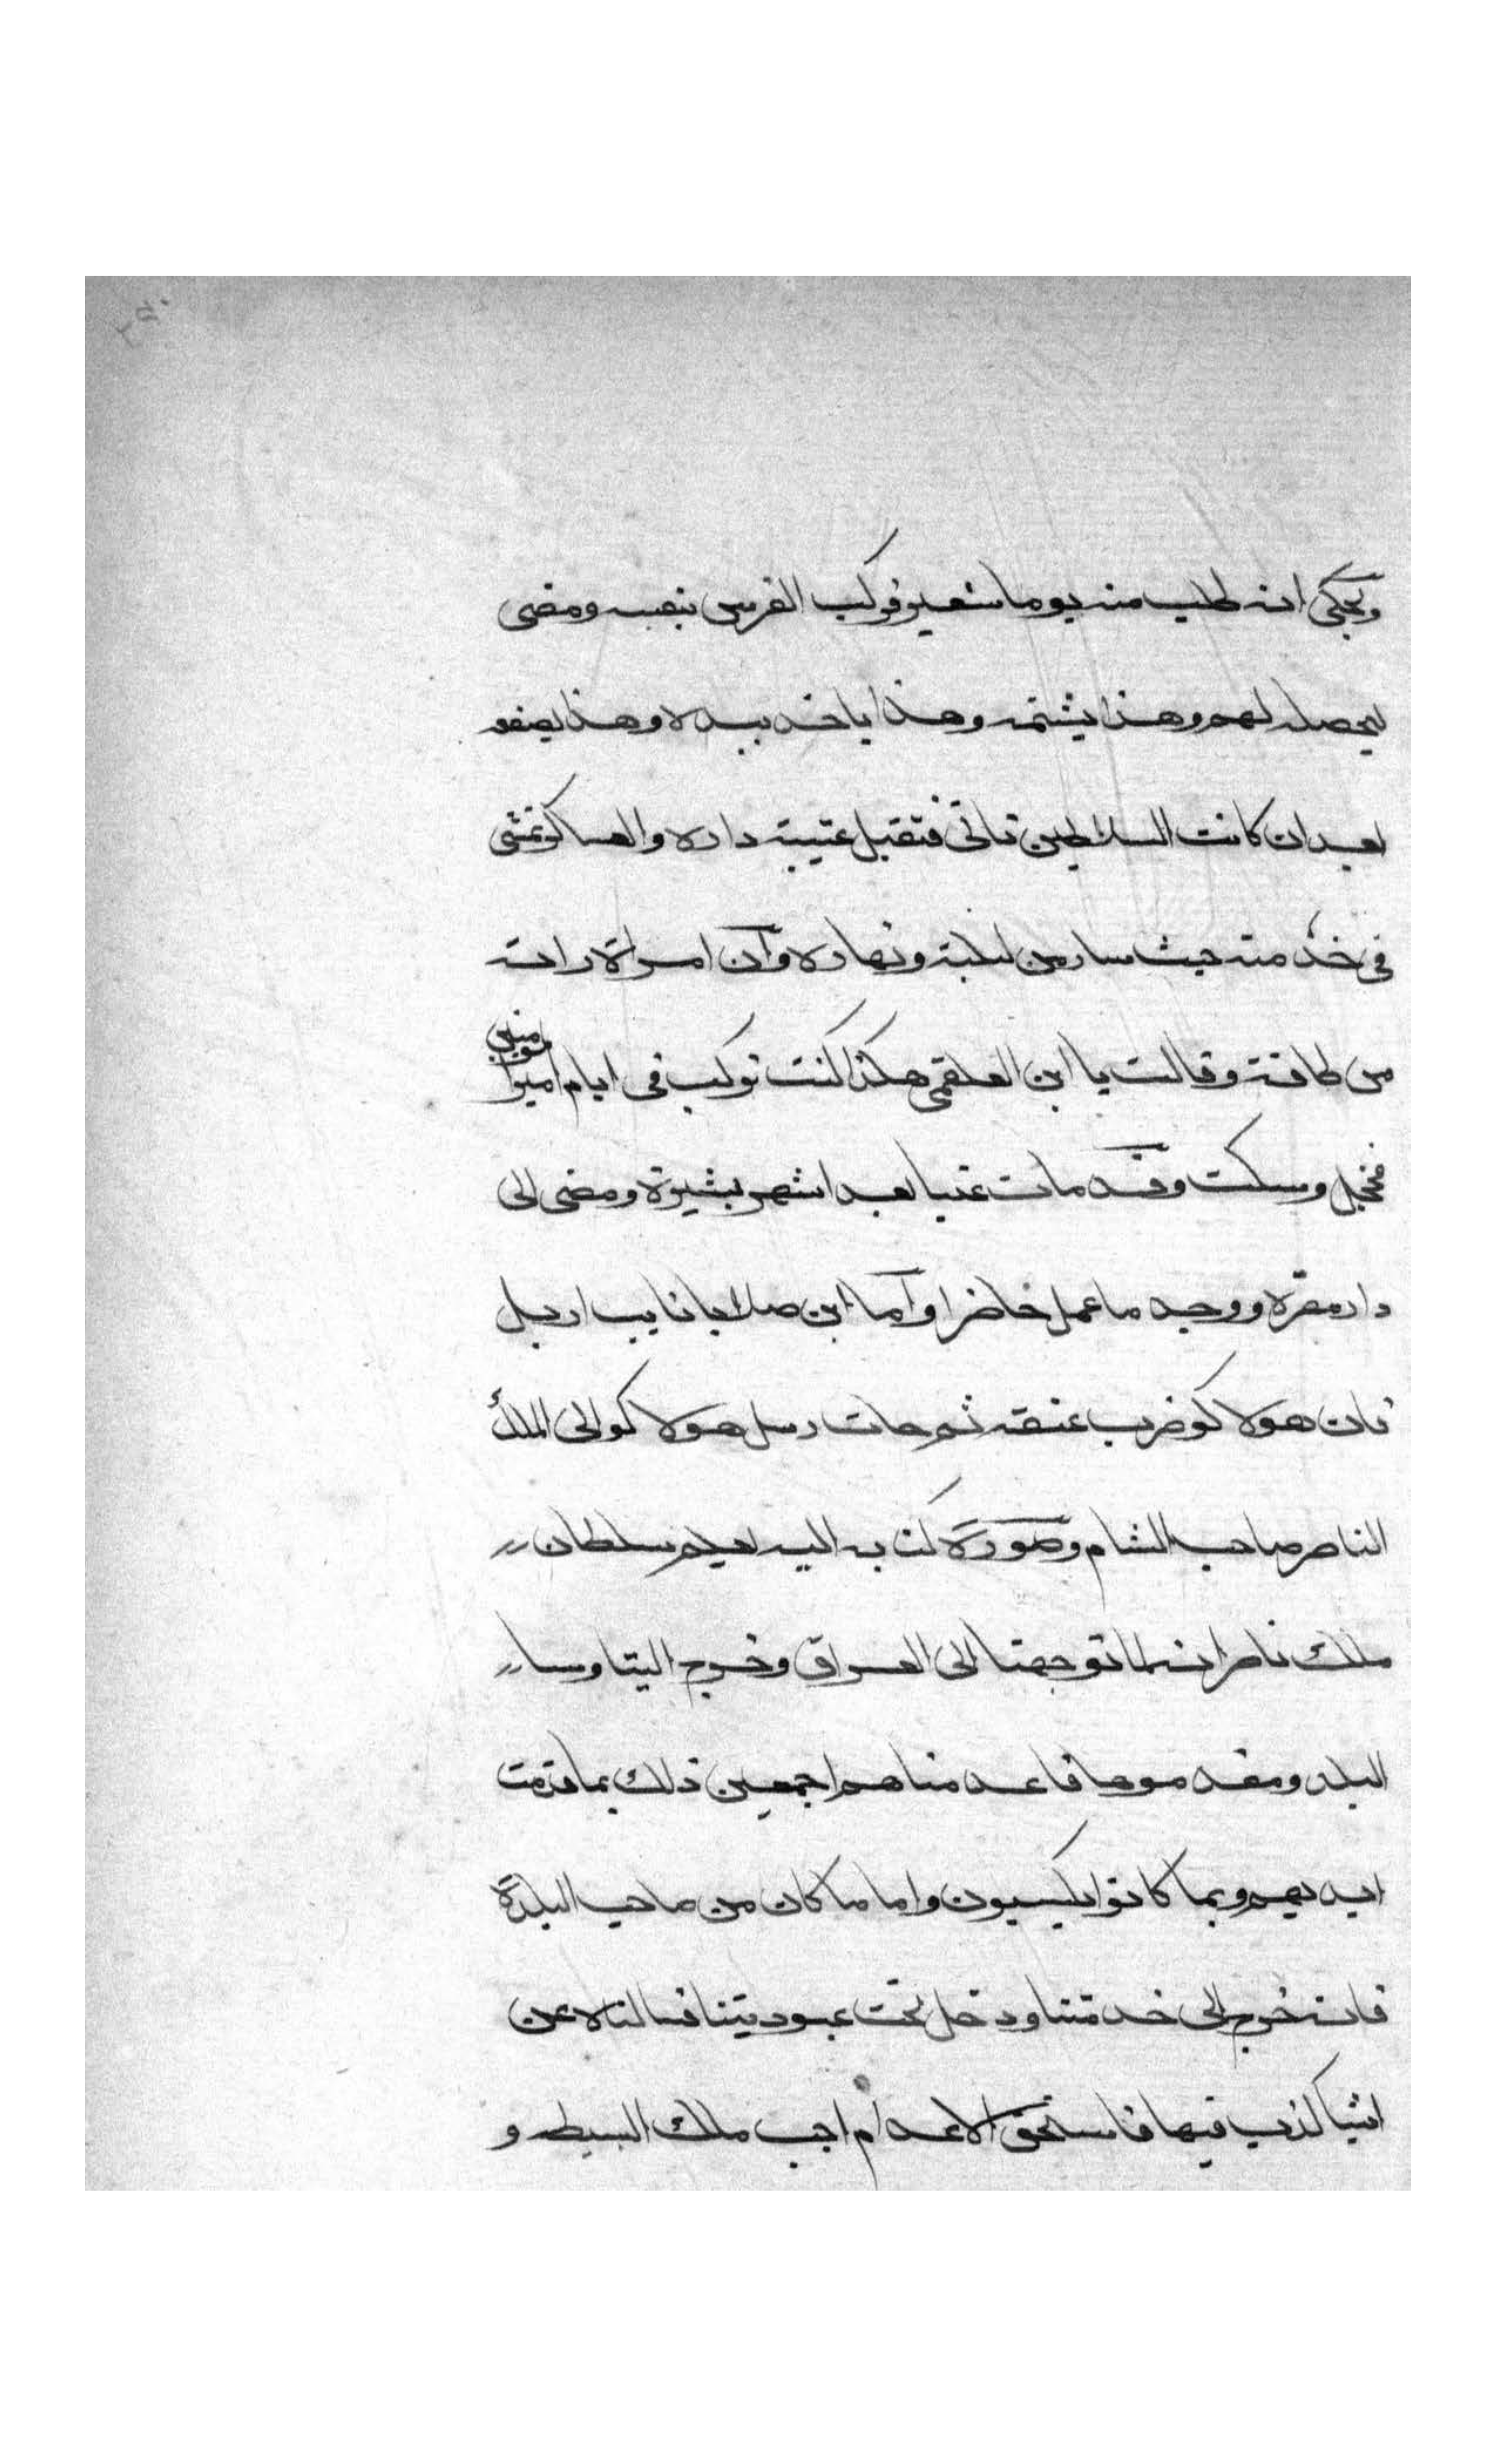 ويحكى انه طلب منه يوما شعير فركب الفرس بنفسه ومضى
ليحصله لهم وهذا يشتمه وهذا ياخذ بيده وهذا يصفعه
بعد ان كانت السلاطين تاتى فتقبل عتبة داره والعساكر تمشى
فى خدمته حيث سار من ليله ونهاره وان امراة راته
من طاقة وقالت يا ابن العلقمى هكذا كنت تركب فى ايام امير المومنين
فخجل وسكت وقد مات غبنا بعد اشهر يسيرة ومضى الى
دار مقره ووجد ما عمل حاضرا واما ابن صلايا نايب اربل
فان هولاكو ضرب عنقه ثم جات رسل هولاكو الى الملك
الناصر صاحب الشام وصورة كتابه اليه يعلم سلطان
ملك ناصر انه لما توجهنا الى العراق وخرج الينا وسار
البلد ومقدموها فاعدمناهم اجمعين ذلك بما قدمت
ايديهم وبما كانوا يكسبون واما ما كان من صاحب البلدة
فانه خرج الى خدمتنا ودخل تحت عبوديتنا فسالناه عن
اشيا كذب فيها فاستحق الاعدام اجب ملك البسيطه و